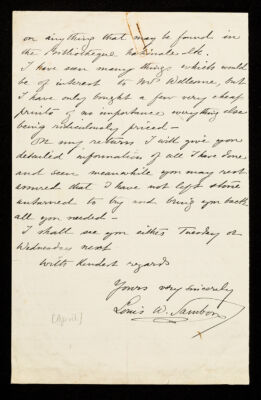 on anything that may be found in
the Bibliotheque nationale etc.
I have seen many things which would
be of interest to Mr Wellcome, but
I have only bought a few very cheap
prints of no importance everything else
being ridiculously priced —
On my return I will give you
detailed information of all I have done
and seen meanwhile you may rest
assured that I have not left stone
unturned to try and bring you back
all you needed —
I shall see you either Tuesday or
Wednesday next
With kindest regards
Yours very sincerely
Louis W. Sambon
[April]